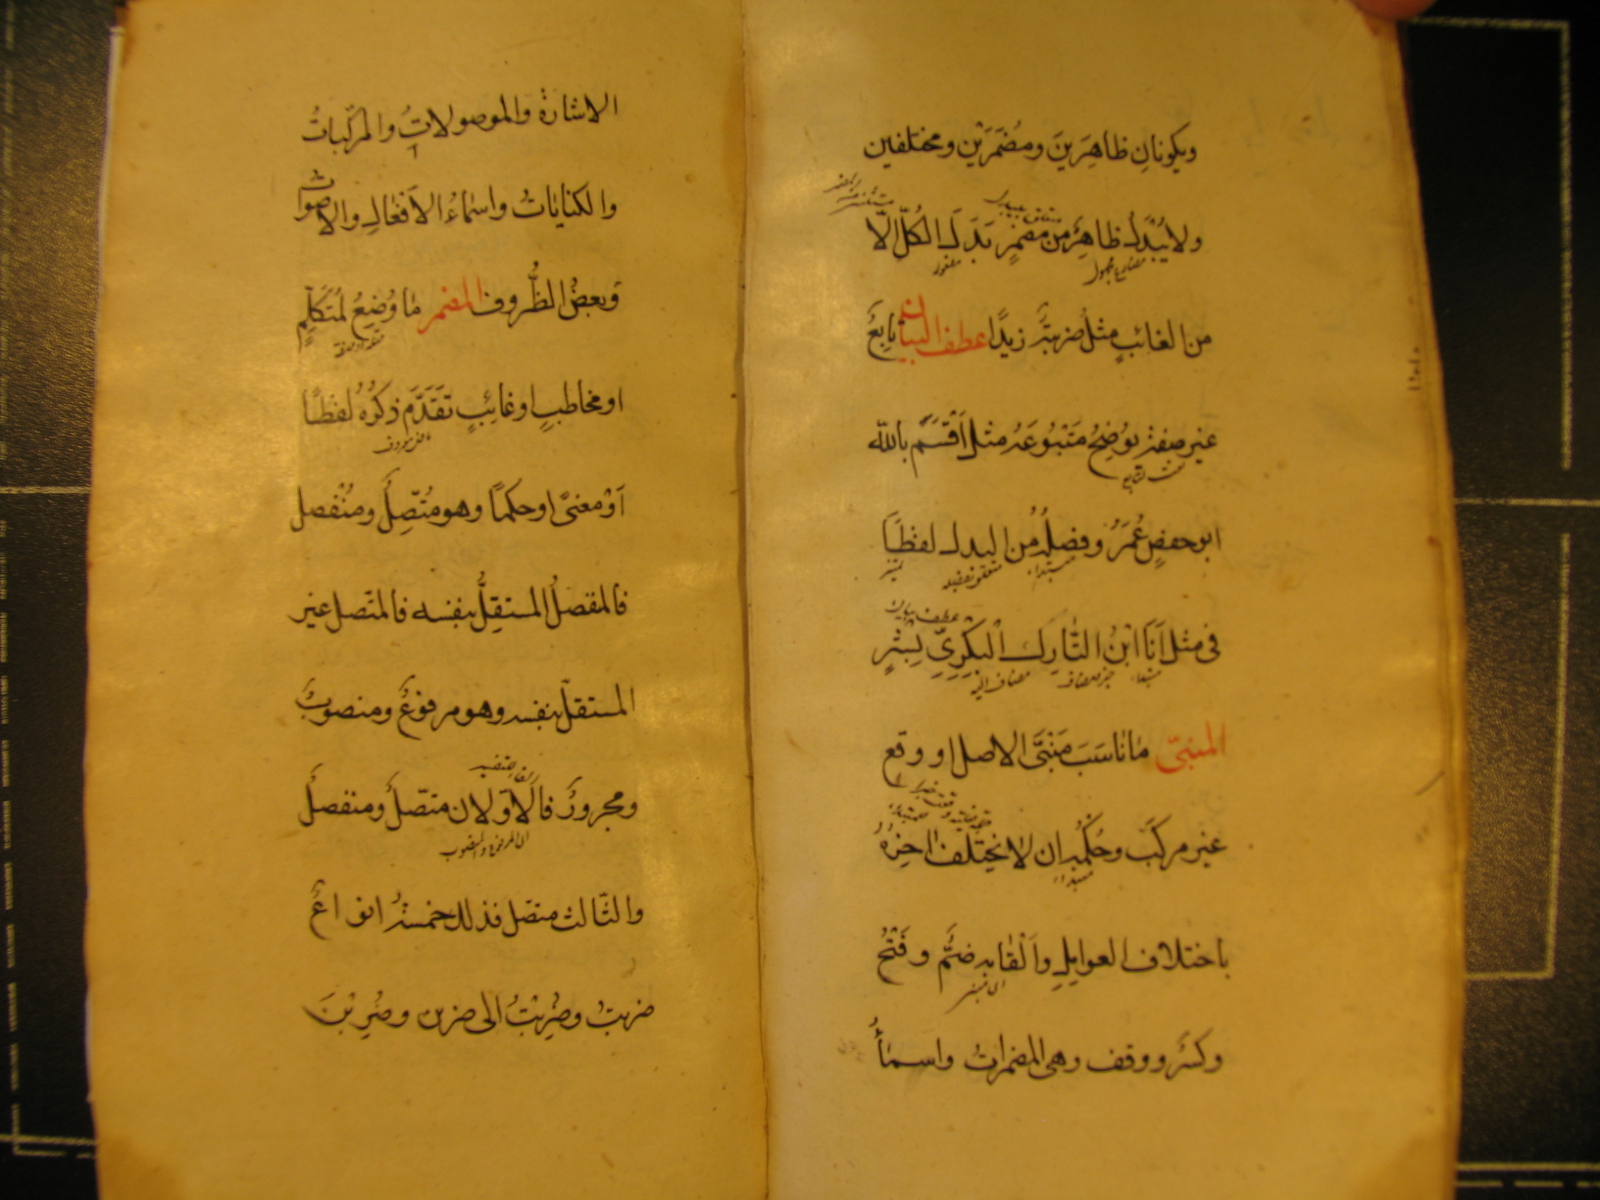 ويكونانِ ظاهِرَينَ ومُضمَرَيْنِ ومختلفين
ولا يُبْدَلُ ظاهِرٌ من مضمَرٍ بَدَلَ الكُلِّ الّا
من الغائبِ مثلُ ضربتُهُ زيدًا عطف البيان تابعٌ
غير صفةٍ يُوضِحُ مَتبُوعَهُ مثل اَقْسَمَ بالله
ابو حفصٍ عُمَرُ وفصلُهُ من البدل لفظًا
فى مثل اَنَا ابْنُ التّٰارِكِ الْبَكرِىِّ بِشْرٍ
المبنىّ مٰا نٰاسَبَ مَبْنىَّ الاصل او وقع
غير مركبٍ وحُكْمُه ان لا يختلف اخِرُهُ
باختلاف العوامِلِ واَلْقٰابه ضمٌّ وفَتْحٌ
وكسرٌ ووقف وهى المضمراتُ واسمٰاءُ
الاشارة والموصولاتُ والمركّباتُ
والكنايٰاتُ واسمٰاءُ الاَفعٰالِ والاصوات
وبعضُ الظُّروف المضمر مٰا وُضِعَ لمُتَكلِّمٍ
او مخاطبٍ او غائِبٍ تقَدَّم ذكرُهُ لفظًا
اَوْ معنىً او حكمًا وهو مُتّصِلٌ ومنْفصل
فالمنفصلُ المستقِلُّ بنفسه فالمتّصل غير
المستقلّ بنفسه وهو مرفوعٌ ومنصوبٌ
ومجرورٌ فالاَوّلان متصلٌ ومنفصلٌ
والثّالث متصّل فذلك خمسةُ انواعٍ
ضربتُ وضُرِبْتُ الى ضربن وضُرِبْنَ